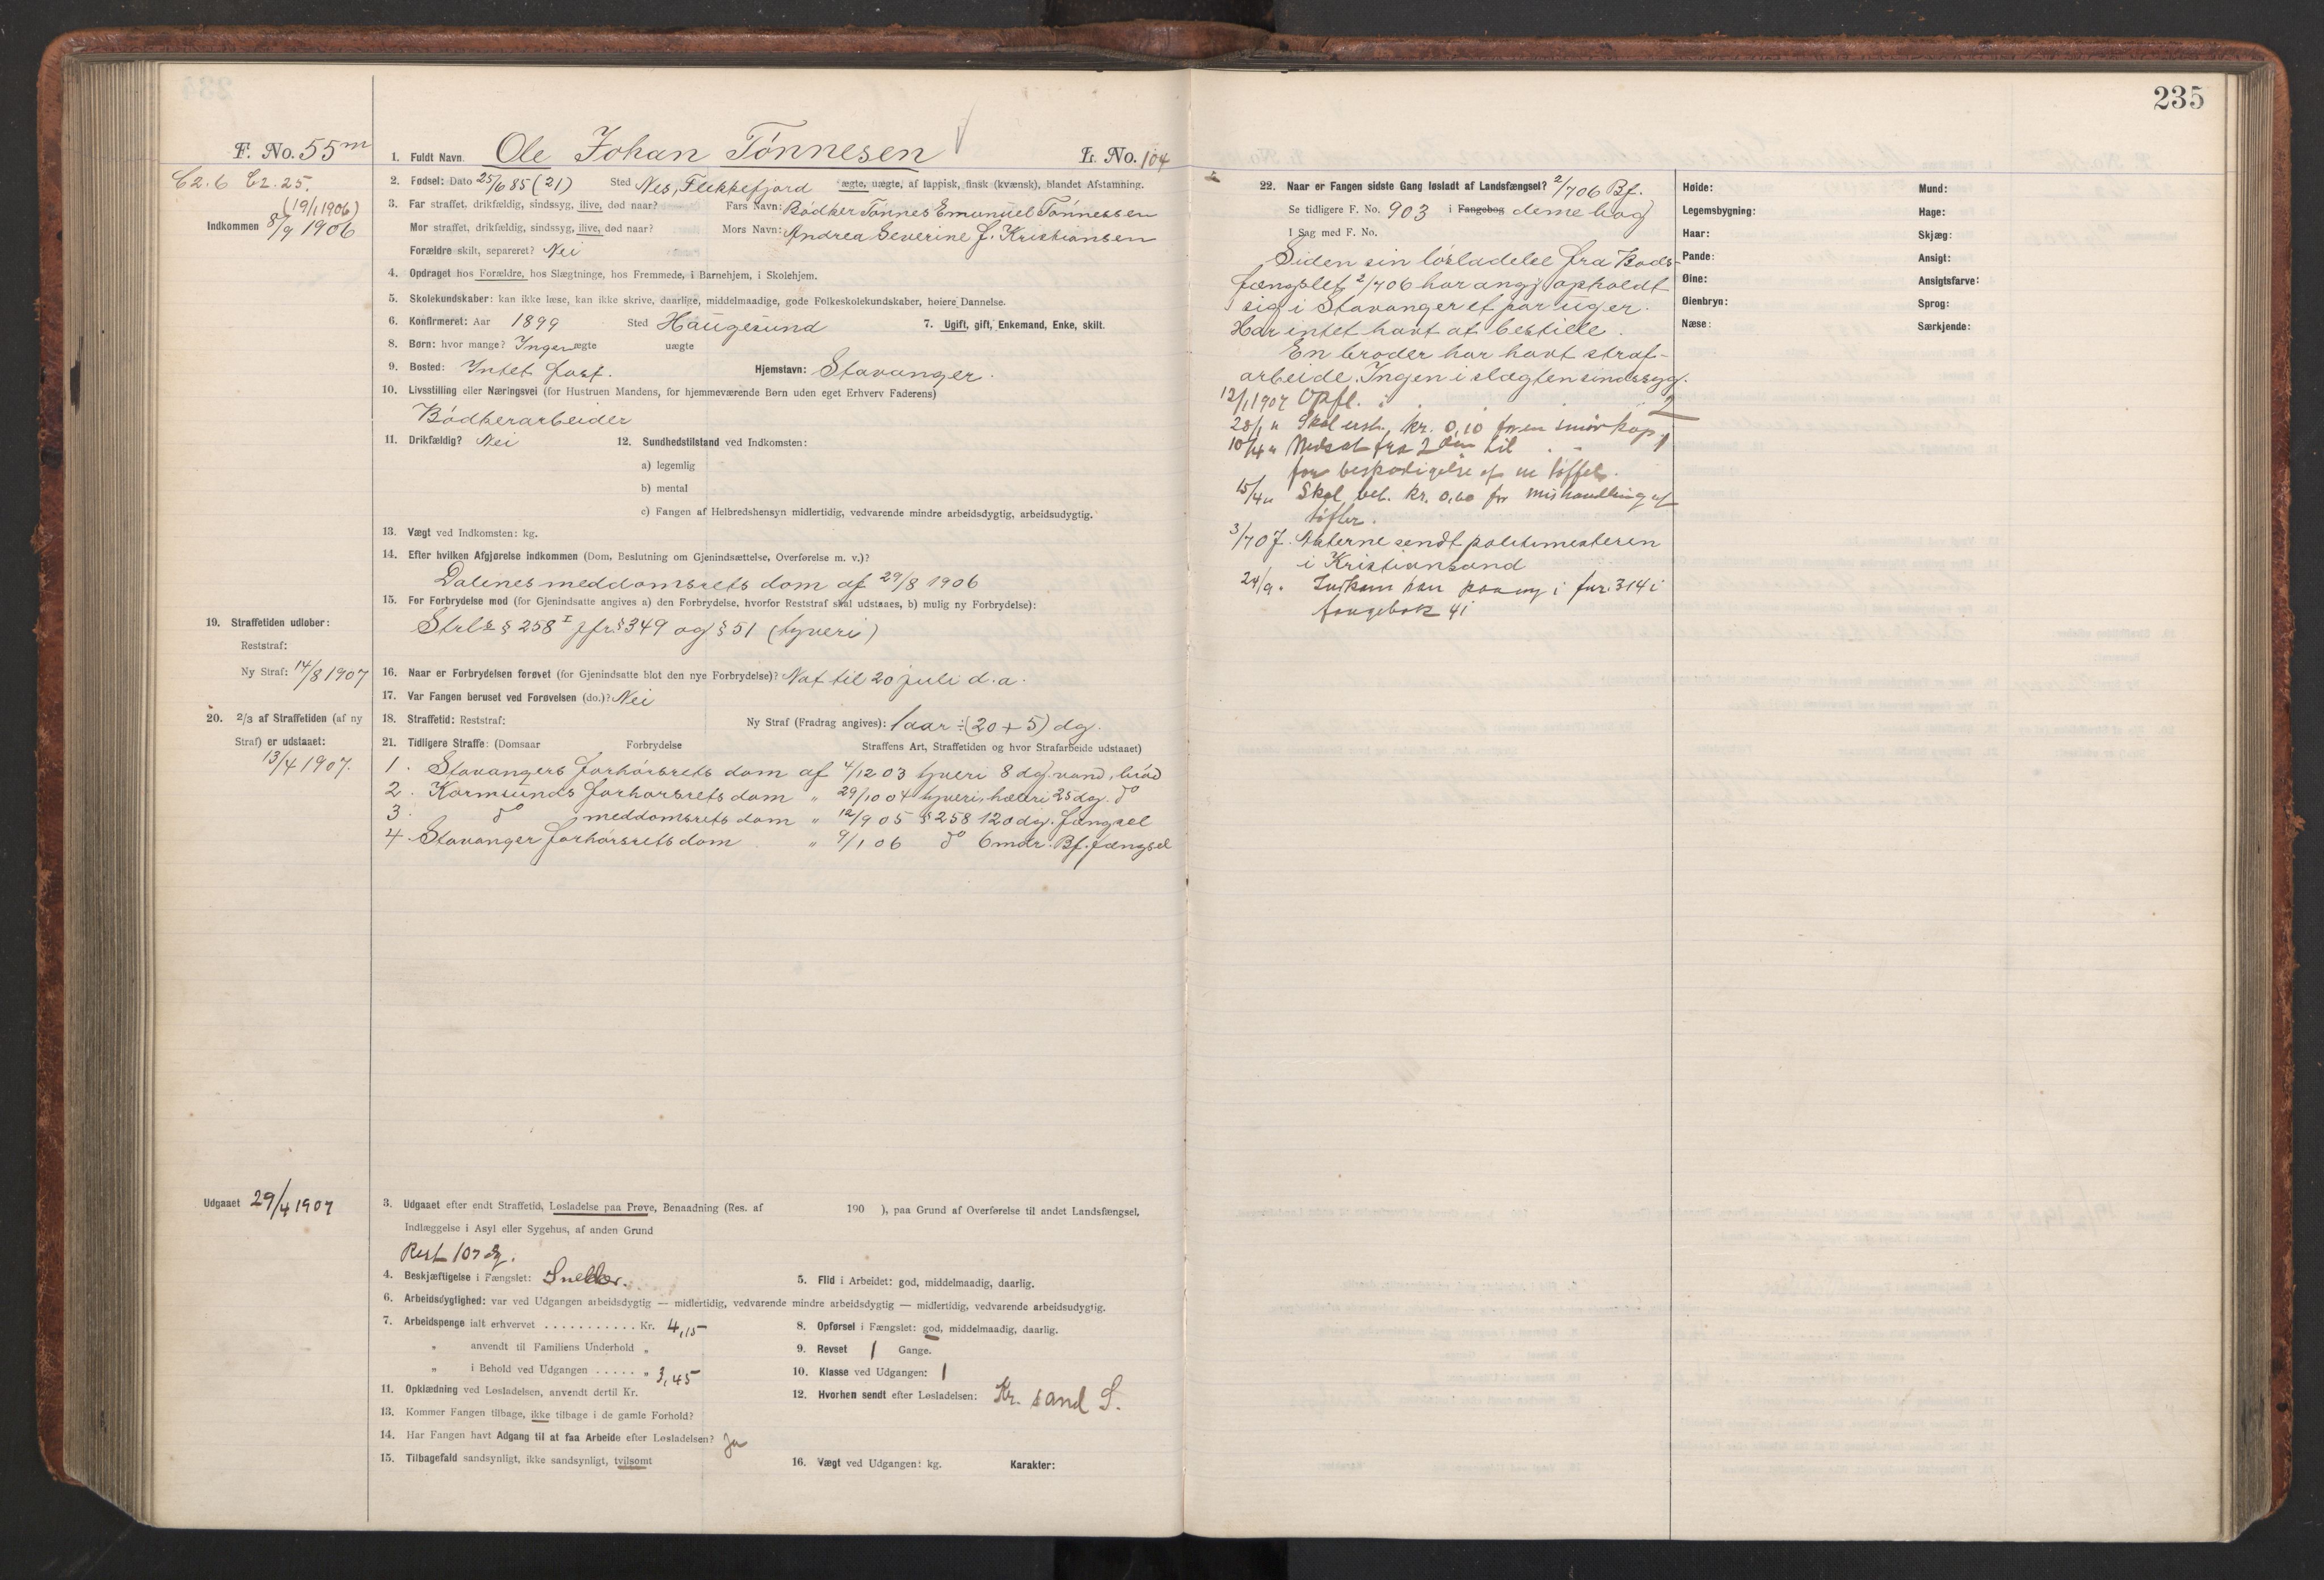 235
F. No. 55
1. Fuldt Navn. Ole Johan Tønnesen
L. No. 104
C2.6 C2.25.
(19/1 1906)
Indkommen 8/9 1906
2. Fødsel: Dato 25/6 85 (21) Sted Nes, Flekkefjord ægte, uægte, af lappisk, finsk (kvænsk), blandet Afstamning.
3. Far straffet, drikfældig, sindssyg, ilive, død naar? Fars Navn: Bødker Tønnes Emanuel Tønnessen
Mor straffet, drikfældig, sindssyg, ilive, død naar? Mors Navn: Andrea Severine f. Kristiansen
Forældre skilt, separeret? Nei
4. Opdraget hos Forældre, hos Slægtninge, hos Fremmede, i Barnehjem, i Skolehjem.
5. Skolekundskaber: kan ikke læse, kan ikke skrive, daarlige, middelmaadige, gode Folkeskolekundskaber, høiere Dannelse.
6. Konfirmeret: Aar 1899 Sted Haugesund 7. Ugift, gift, Enkemand, Enke, skilt.
8. Børn: hvor mange? Ingen ægte uægte
9. Bosted: Intet fast. Hjemstavn: Stavanger.
10. Livsstilling eller Næringsvei (for Hustruen Mandens, for hjemmeværende Børn uden eget Erhverv Faderens)
Bødkerarbeider
11. Drikfældig? Nei 12. Sundhedstilstand ved Indkomsten:
a) legemlig
b) mental
c) Fangen af Helbredshensyn midlertidig, vedvarende mindre arbeidsdygtig, arbeidsudygtig.
13. Vægt ved Indkomsten: kg.
14. Efter hvilken Afgjørelse indkommen (Dom, Beslutning om Gjenindsættelse, Overførelse m. v.)?
Dalenes meddomsrets dom af 29/8 1906
15. For Forbrydelse mod (for Gjenindsatte angives a) den Forbrydelse, hvorfor Reststraf skal udstaaes, b) mulig ny Forbrydelse):
Strl § 258 I jfr. § 349 og § 51 (tyveri)
19. Straffetiden udløber:
Reststraf:
Ny Straf: 14/8 1907
16. Naar er Forbrydelsen forøvet (for Gjenindsatte blot den nye Forbrydelse)? Nat til 20 juli d.a.
17. Var Fangen beruset ved Forøvelsen (do.)? Nei
20. 2/3 af Straffetiden (af ny Straf) er udstaaet:
13/4 1907.
18. Straffetid: Reststraf: Ny Straf (Fradrag angives): 1 aar ÷ (20 + 5) dg.
21. Tidligere Straffe: (Domsaar Forbrydelse Straffens Art, Straffetiden og hvor Strafarbeide udstaaet)
1. Stavangers forhørsrets dom af 4/12 03 tyveri 8 dg. vand, brød
2. Karmsunds forhørsrets dom " 29/10 04 tyveri, hæleri 25 dg. do
3. do meddomsrets dom " 12/9 05 § 258 120 dg. fængsel
4. Stavanger forhørsrets dom " 9/1 06 do 6 mdr. Bf. fængsel
Udgaaet 29/4 1907
3. Udgaaet efter endt Straffetid, Løsladelse paa Prøve, Benaadning (Res. af 190 ), paa Grund af Overførelse til andet Landsfængsel,
Indlæggelse i Asyl eller Sygehus, af anden Grund
Rest 107 dg.
4. Beskjæftigelse i Fængslet: Snekker. 5. Flid i Arbeidet: god, middelmaadig, daarlig.
6. Arbeidsdygtighed: var ved Udgangen arbeidsdygtig — midlertidig, vedvarende mindre arbeidsdygtig — midlertidig, vedvarende arbeidsudygtig.
7. Arbeidspenge ialt erhvervet . . . . . . . . . . . Kr. 4,15 8. Opførsel i Fængslet: god, middelmaadig, daarlig.
" anvendt til Familiens Underhold " 9. Revset 1 Gange.
" i Behold ved Udgangen . . . . . " 3,45 10. Klasse ved Udgangen: 1
11. Opklædning ved Løsladelsen, anvendt dertil Kr. 12. Hvorhen sendt efter Løsladelsen: Kr. sand S.
13. Kommer Fangen tilbage, ikke tilbage i de gamle Forhold?
14. Har Fangen havt Adgang til at faa Arbeide efter Løsladelsen? Ja
15. Tilbagefald sandsynligt, ikke sandsynligt, tvilsomt 16. Vægt ved Udgangen: kg. Karakter:
22. Naar er Fangen sidste Gang løsladt af Landsfængsel? 2/7 06 Bf.
Se tidligere F. No. 903 i Fangebog denne bog
I Sag med F. No.
Siden sin løsladelse fra Bods-
fængslet 2/7 06 har angj. opholdt
sig i Stavanger et par uger.
Har intet havt at bestille.
En broder har havt straf-
arbeide. Ingen i slægten sindssyg.
12/1 1907 Opfl. 2
28/1 " Skal erst. kr. 0,10 for en smørkop
10/4 " Nedsat fra 2den til 1
for beskadigelse af en tøffel.
15/4 " Skal bet. kr. 0,60 for mishandling af
tøfler.
3/7 07. Akterne sendt politimesteren
i Kristiansand
24/9. Indkom han paany i fnr. 314 i
fangebok 41
Høide:
Legemsbygning:
Haar:
Pande:
Øine:
Øienbryn:
Næse:
Mund:
Hage:
Skjæg:
Ansigt:
Ansigtsfarve:
Sprog:
Særkjende: